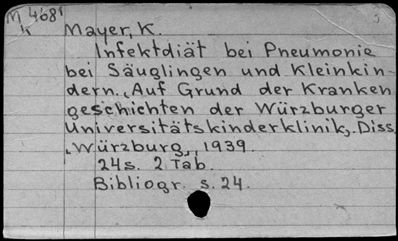 M 4681
k
Mayer, K.
Infektdiät bei Pneumonie
bei Säuglingen und Kleinkin
dern. Auf Grund der Kranken
geschichten der Würzburger
Universitätskinderklinik, Diss
Würzburg, 1939.
24s. 2 Tab.
Bibliogr. s. 24.